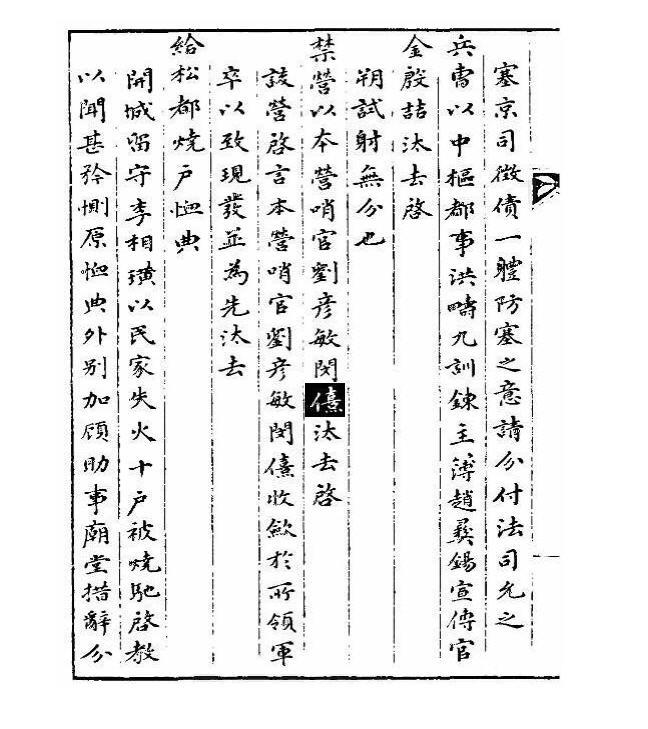 塞京司徵債一體防塞之意請分付法司允之
兵曹以中樞都事洪疇九訓鍊主簿趙彛錫宣傳官
金殷喆汰去啓
朔試射無分也
禁營以本營哨官劉彦敏閔僖汰去啓
該營啓言本營哨官劉彦敏閔僖收歛於所領軍
卒以致現發並為先汰去
給松都燒戶恤典
開城留守李相璜以民家失火十戶被燒馳啓教
以聞甚矜惻原恤典外別加顧助事廟堂措辭分